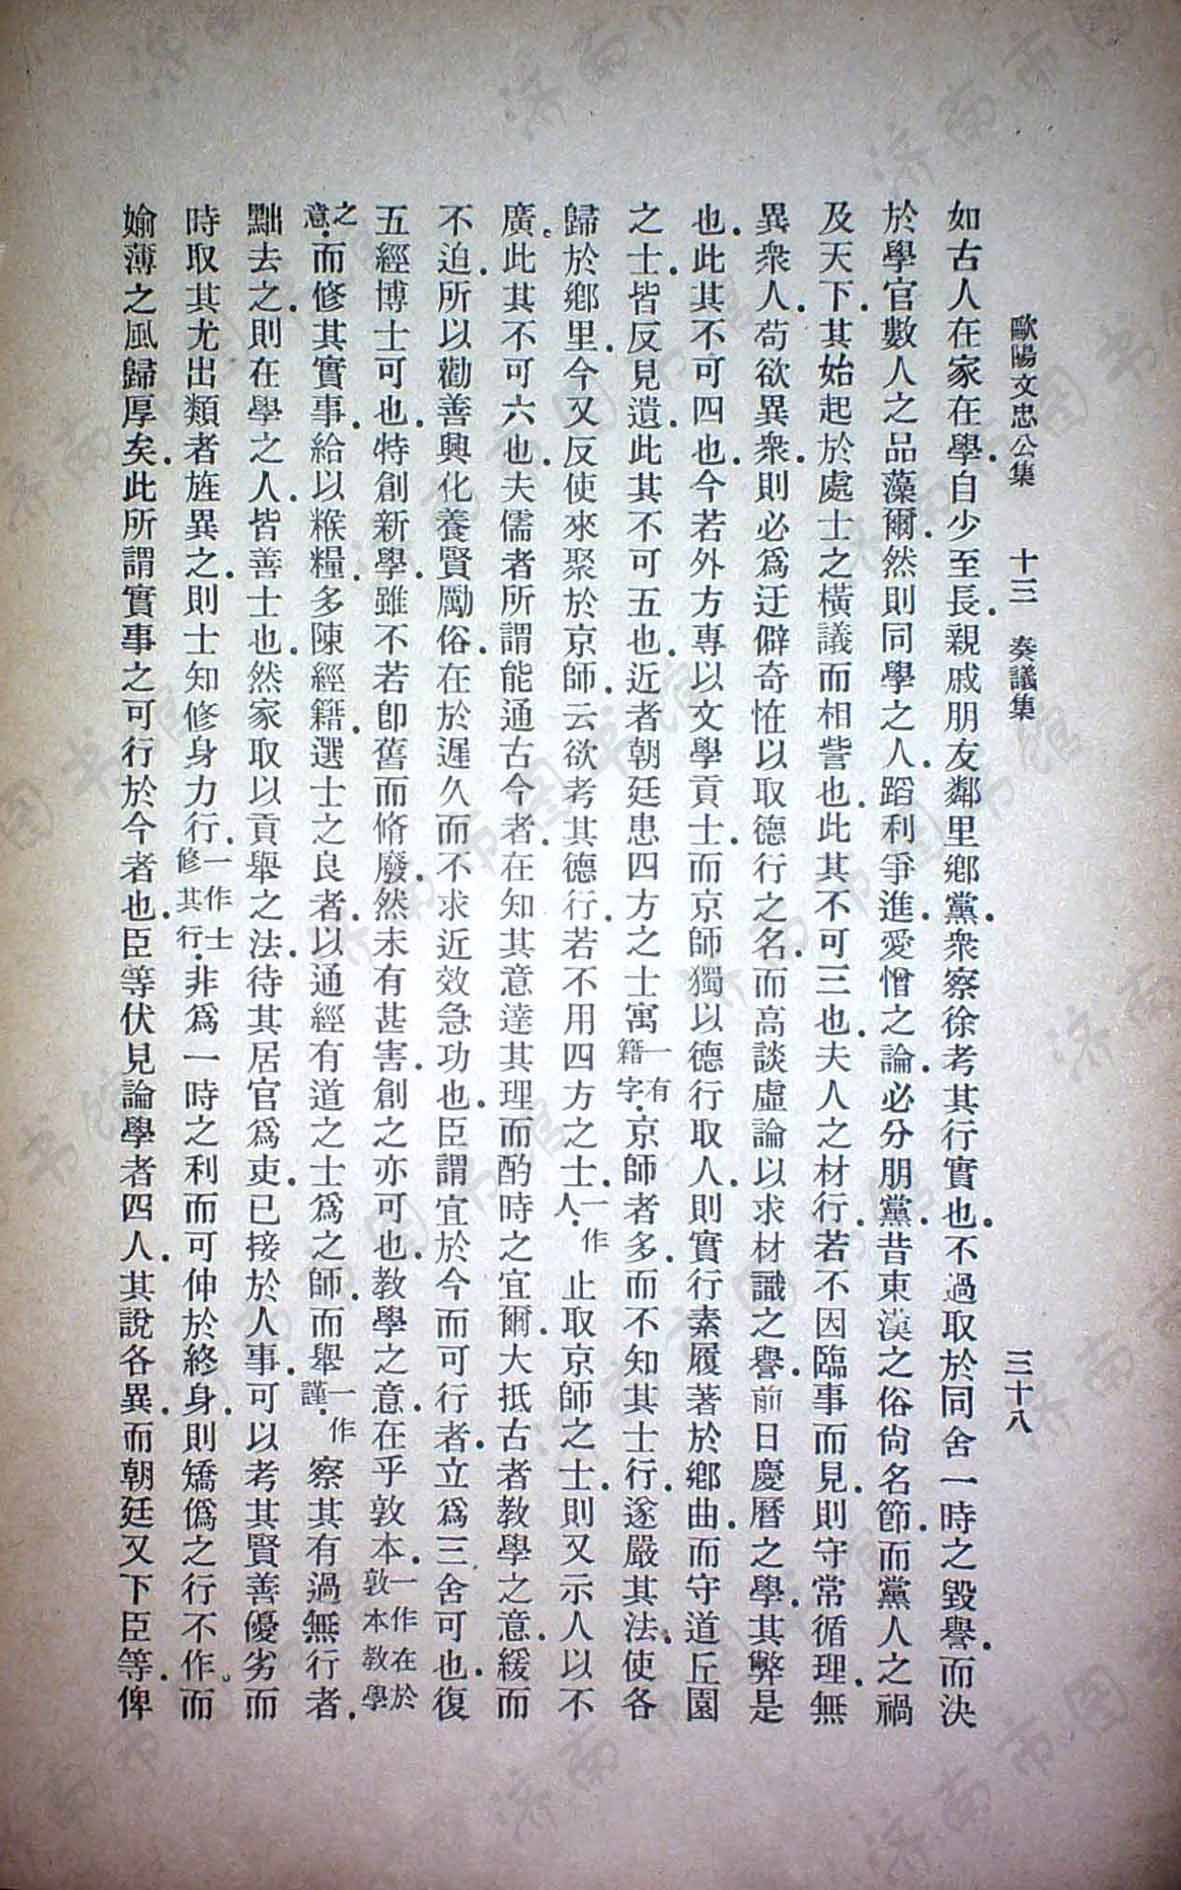 歐陽文忠公集　十三　奏議集　三十八
如古人在家在學．自少至長．親戚朋友鄰里鄉黨．衆察徐考其行實也．不過取於同舍一時之毀譽．而決
於學官數人之品藻爾．然則同學之人．蹈利爭進．愛憎之論．必分朋黨．昔東漢之俗尙名節．而黨人之禍
及天下．其始起於處士之橫議而相訾也．此其不可三也．夫人之材行．若不因臨事而見．則守常循理．無
異衆人．苟欲異衆．則必爲迂僻奇怪以取德行之名．而高談虛論以求材識之譽．前日慶曆之學．其弊是
也．此其不可四也．今若外方專以文學貢士．而京師獨以德行取人．則實行素履著於鄉曲．而守道丘園
之士．皆反見遺．此其不可五也．近者朝廷患四方之士寓一有籍字．京師者多．而不知其士行．遂嚴其法．使各
歸於鄉里．今又反使來聚於京師．云欲考其德行．若不用四方之士．一作人．止取京師之士．則又示人以不
廣。此其不可六也．夫儒者所謂能通古今者．在知其意達其理而酌時之宜爾．大抵古者教學之意．緩而
不迫．所以勸善興化養賢勵俗．在於遲久而不求近效急功也．臣謂宜於今而可行者．立爲三舍可也．復
五經博士可也．特創新學．雖不若卽舊而脩廢．然未有甚害．創之亦可也．教學之意．在乎敦本．一作在於敦本教學
之意．而修其實事．給以糇糧．多陳經籍．選士之良者．以通經有道之士爲之師．而舉一作謹．察其有過無行者．
黜去之．則在學之人．皆善士也．然家取以貢舉之法．待其居官爲吏．已接於人事．可以考其賢善優劣而
時取其尤出類者旌異之．則士知修身力行．一作士修其行．非爲一時之利而可伸於終身．則矯僞之行不作。而
媮薄之風歸厚矣．此所謂實事之可行於今者也．臣等伏見論學者四人．其說各異．而朝廷又下臣等．俾